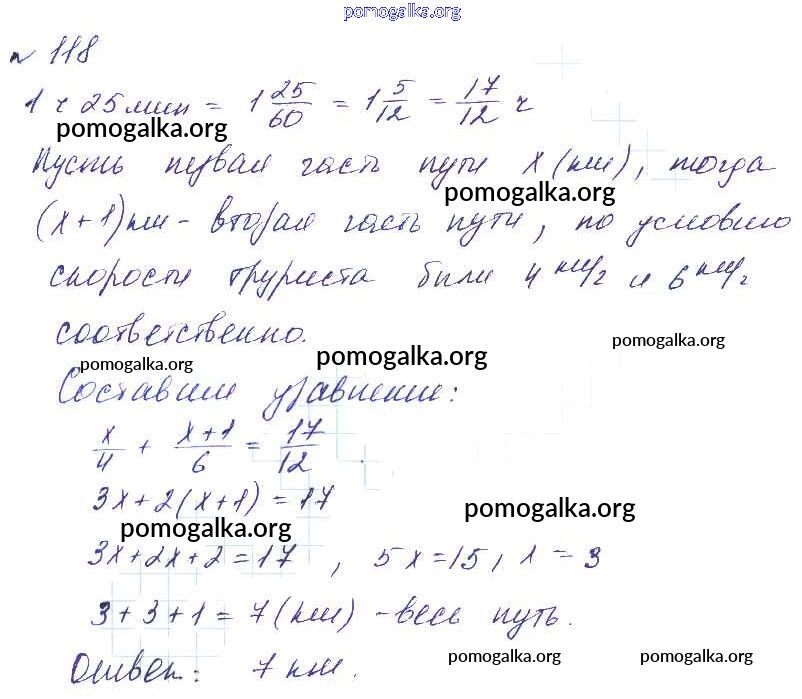 pomogalka.org
№ 118
1 ч 25 мин = 1 25/60 = 1 5/12 = 17/12 ч
pomogalka.org
pomogalka.org
Пусть первая часть пути x (км), тогда
pomogalka.org
(x+1) км - вторая часть пути, по условию
скорости туриста были 4 км/ч и 6 км/ч
соответственно.
pomogalka.org
pomogalka.org
pomogalka.org
Составим уравнение:
x/4 + x+1/6 = 17/12
3x+2(x+1) = 17
pomogalka.org
pomogalka.org
3x+2x+2=17, 5x=15, x=3
3+3+1=7 (км) - весь путь.
Ответ: 7 км.
pomogalka.org
pomogalka.org